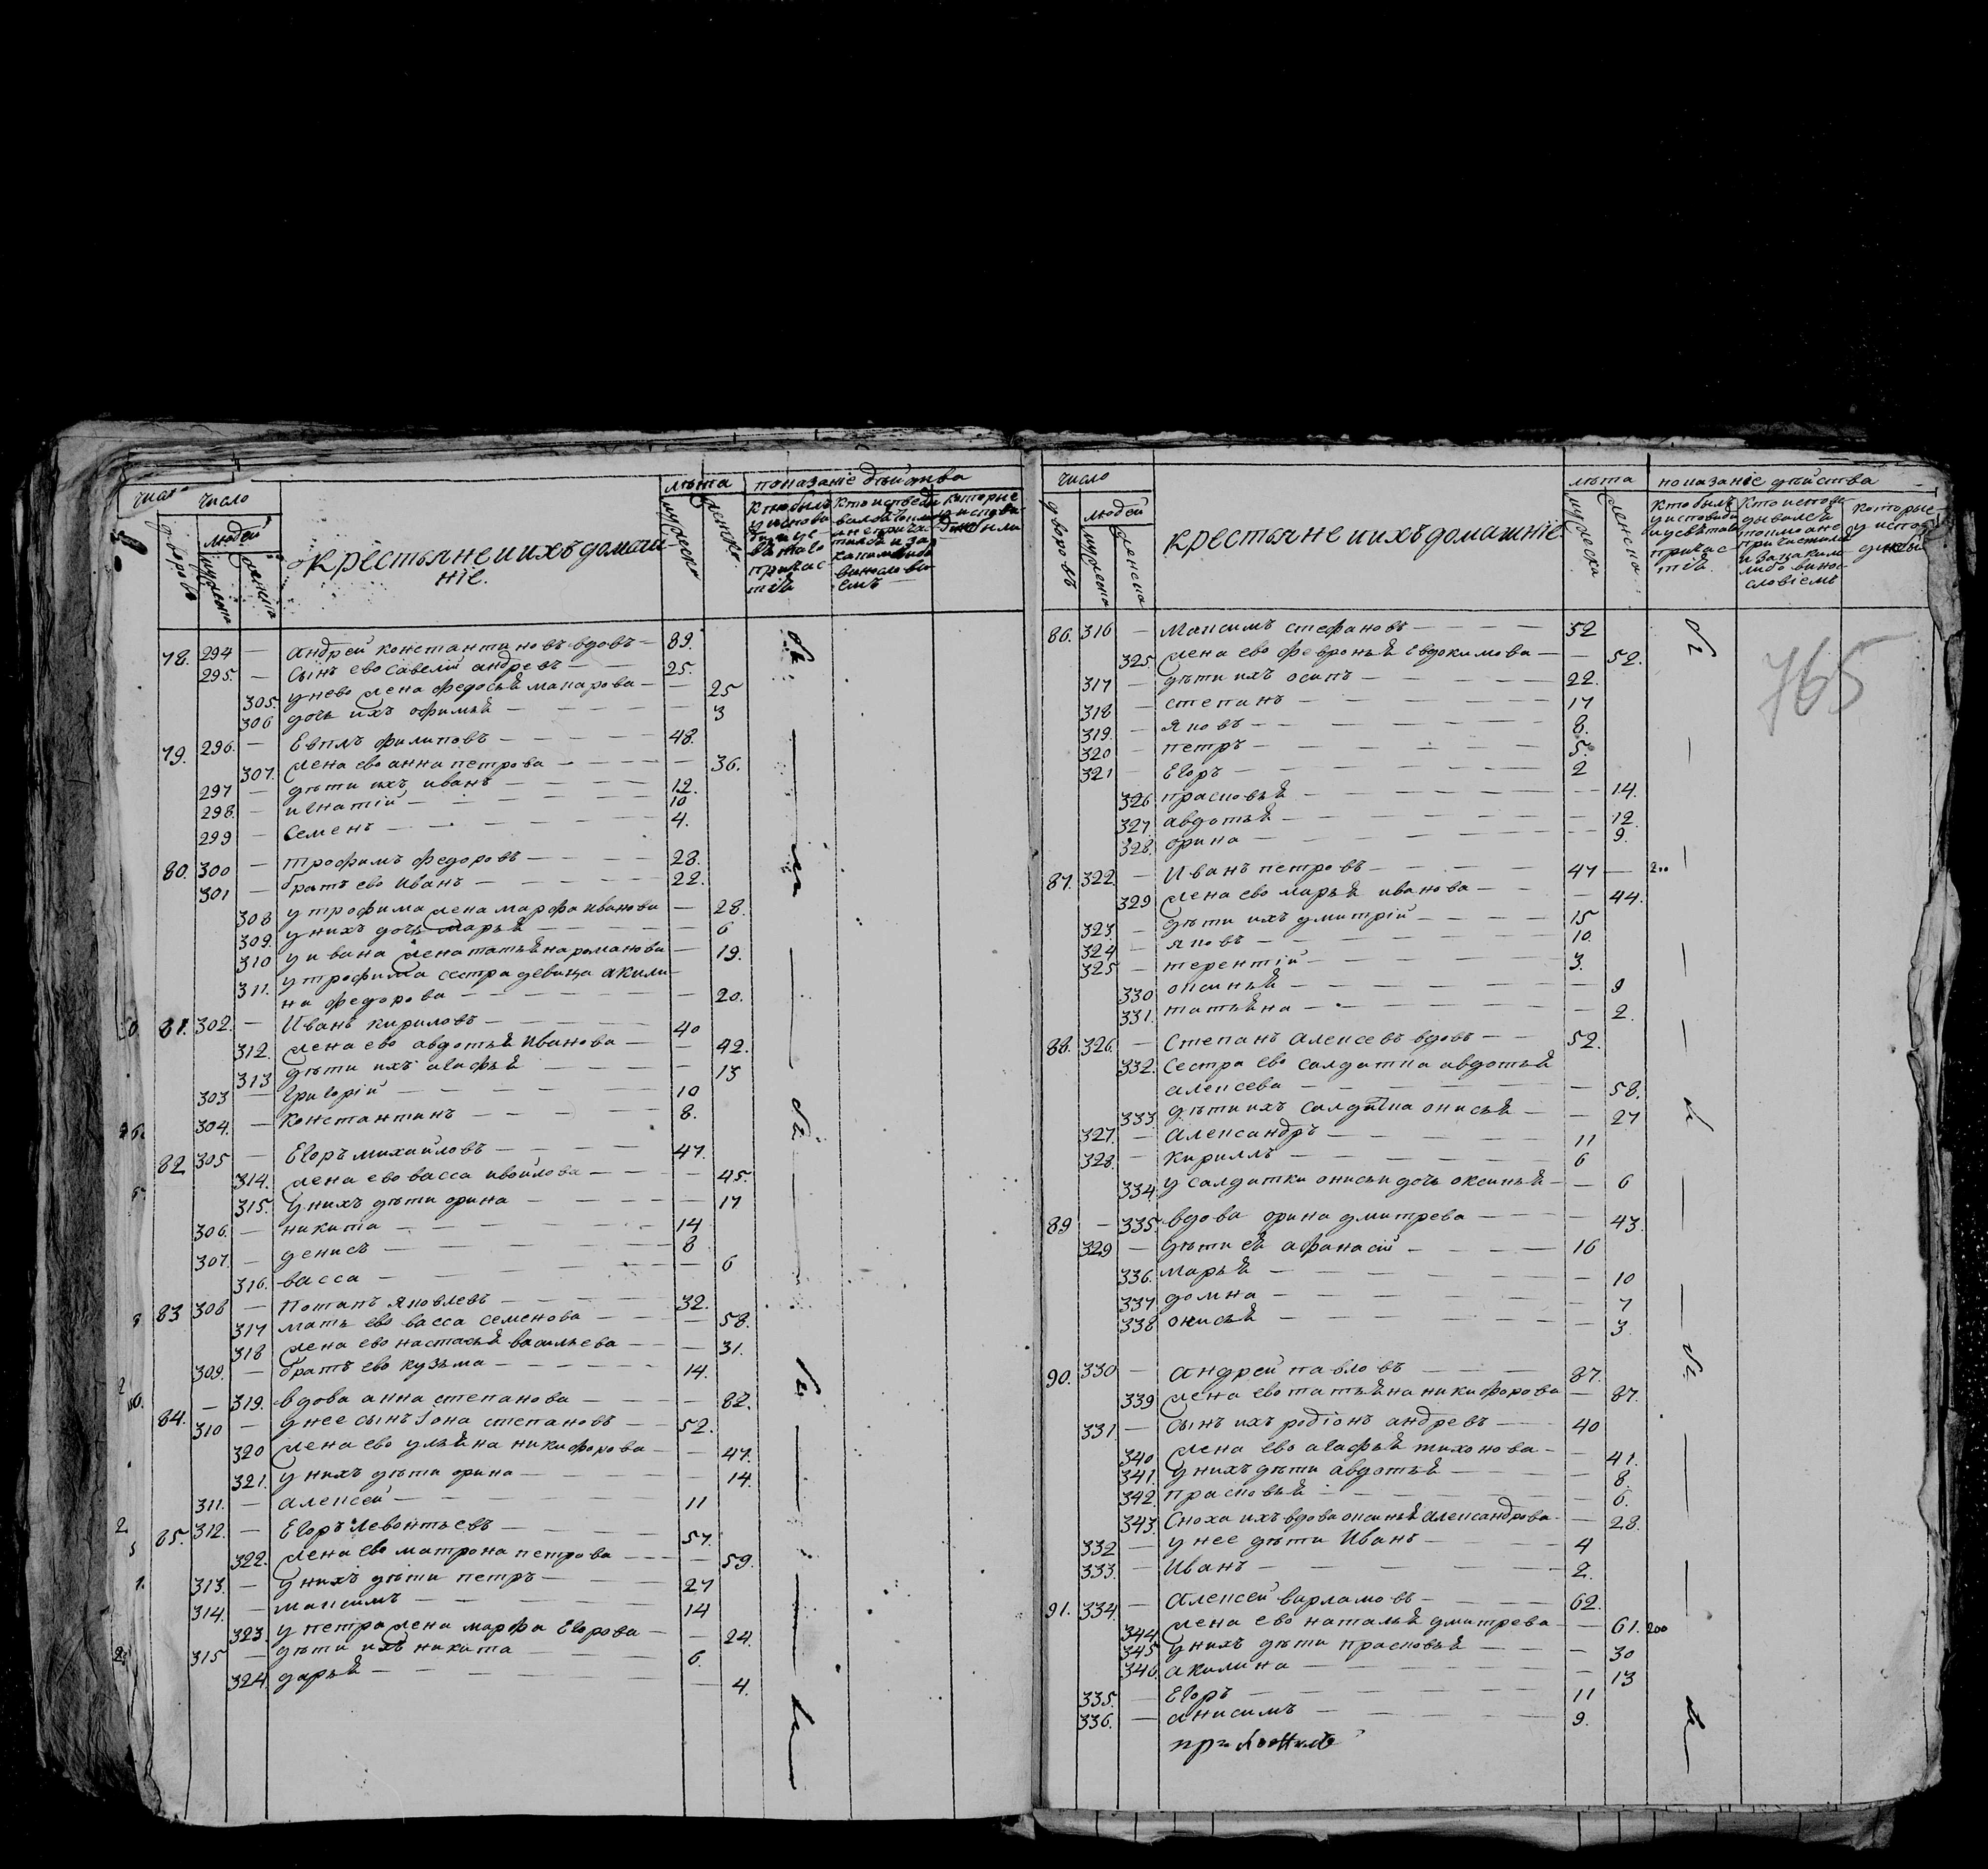 число число лѣта показаніе дѣйства
дворовъ людей мужеска женска
Крестьяне и ихъ домаш-
ніе.
мужеска женска
78. 294 — андрей константиновъ вдовъ — 89.
295. — Сынъ ево савелій андревъ — 25.
305. у нево жена федосья макарова — 25
306 дочь ихъ офимья — 3
79. 296. — Евплъ филиповъ — 48.
307. жена ево анна петрова — 36.
297 — дѣти ихъ иванъ — 12.
298. — игнатій — 10
299 — Семенъ — 4.
80. 300 — трофимъ федоровъ — 28.
301 — братъ ево иванъ — 22.
308 у трофима жена марфа иванова — 28.
309. у нихъ дочь марья — 6
310 у ивана жена татьяна романова — 19.
311. у трофима сестра девица акили-
на федорова — 20.
81. 302. — Иванъ кириловъ — 40
312. жена ево авдотья Иванова — 42.
313 дѣти ихъ агафья — 13
303 — григорій — 10
304. — Константинъ — 8.
82 305 — Егоръ михайловъ — 47.
314. жена ево васса — 45.
315. у нихъ дѣти орина — 17
306. — никита — 14
307. — денисъ — 8
316. васса — 6
83 308 — Потапъ яковлевъ — 32.
317 мать ево васса семенова — 58.
318 жена ево настасья васильева — 31.
309. — братъ ево кузьма — 14.
84. — 319. вдова анна степанова — 82.
310 — у нее сынъ Iона степановъ — 52.
320 жена ево ульяна никифорова — 47.
321. у нихъ дѣти орина — 14.
311. — алексей — 11
85. 312. — Егоръ левонтьевъ — 57.
322. жена ево матрона петрова — 59.
313. — у нихъ дѣти петръ — 27
314. — максимъ — 14
323. у петра жена марфа Егорова — 24.
315 — дѣти ихъ никита — 6.
324. дарья — 4.
число лѣта показаніе дѣйства
дворовъ людей мужеска женска
Крестьяне и ихъ домашніе.
мужеска женска
765
86. 316 — Максимъ стефановъ — 52
325. жена ево февронья Евдокимова — 52.
317 — дѣти ихъ осипъ — 22.
318 — степанъ — 17
319. — яковъ — 8.
320 — петръ — 5.
321 — Егоръ — 2
326 прасковья — 14.
327. авдотья — 12.
328. орина — 9.
87. 322. — Иванъ петровъ — 47
329 жена ево марья иванова — 44.
323. — дѣти ихъ дмитрій — 15
324 — яковъ — 10.
325 — терентій — 3.
330 оксинья — 9
331. татьяна — 2.
88. 326. — Степанъ алексевъ вдовъ — 52.
332. Сестра ево салдатка авдотья
алексева — 58.
333. дѣти ихъ салдатка онисья — 27
327. — александръ — 11
328. — кириллъ — 6
334. у салдатки онисьи дочь оксинья — 6
89 — 335. вдова орина дмитрева — 43.
329 — дѣти ея афанасій — 16
336. марья — 10
337 домна — 7
338 онисья — 3.
90. 330 — андрей павловъ — 87.
339 жена ево татьяна никифорова — 87.
331 — Сынъ ихъ родіонъ андревъ — 40
340 жена ево агафья тихонова — 41.
341. у нихъ дѣти авдотья — 8.
342. прасковья — 6.
343. Сноха ихъ вдова оксинья александрова — 28.
332 — у нее дѣти Иванъ — 4
333. — Иванъ — 2.
91. 334. — алексей варламовъ — 62.
344. жена ево наталья дмитрева — 61.
345. у нихъ дѣти прасковья — 30
346. акилина — 13
335. — Егоръ — 11
336. — анисимъ — 9.